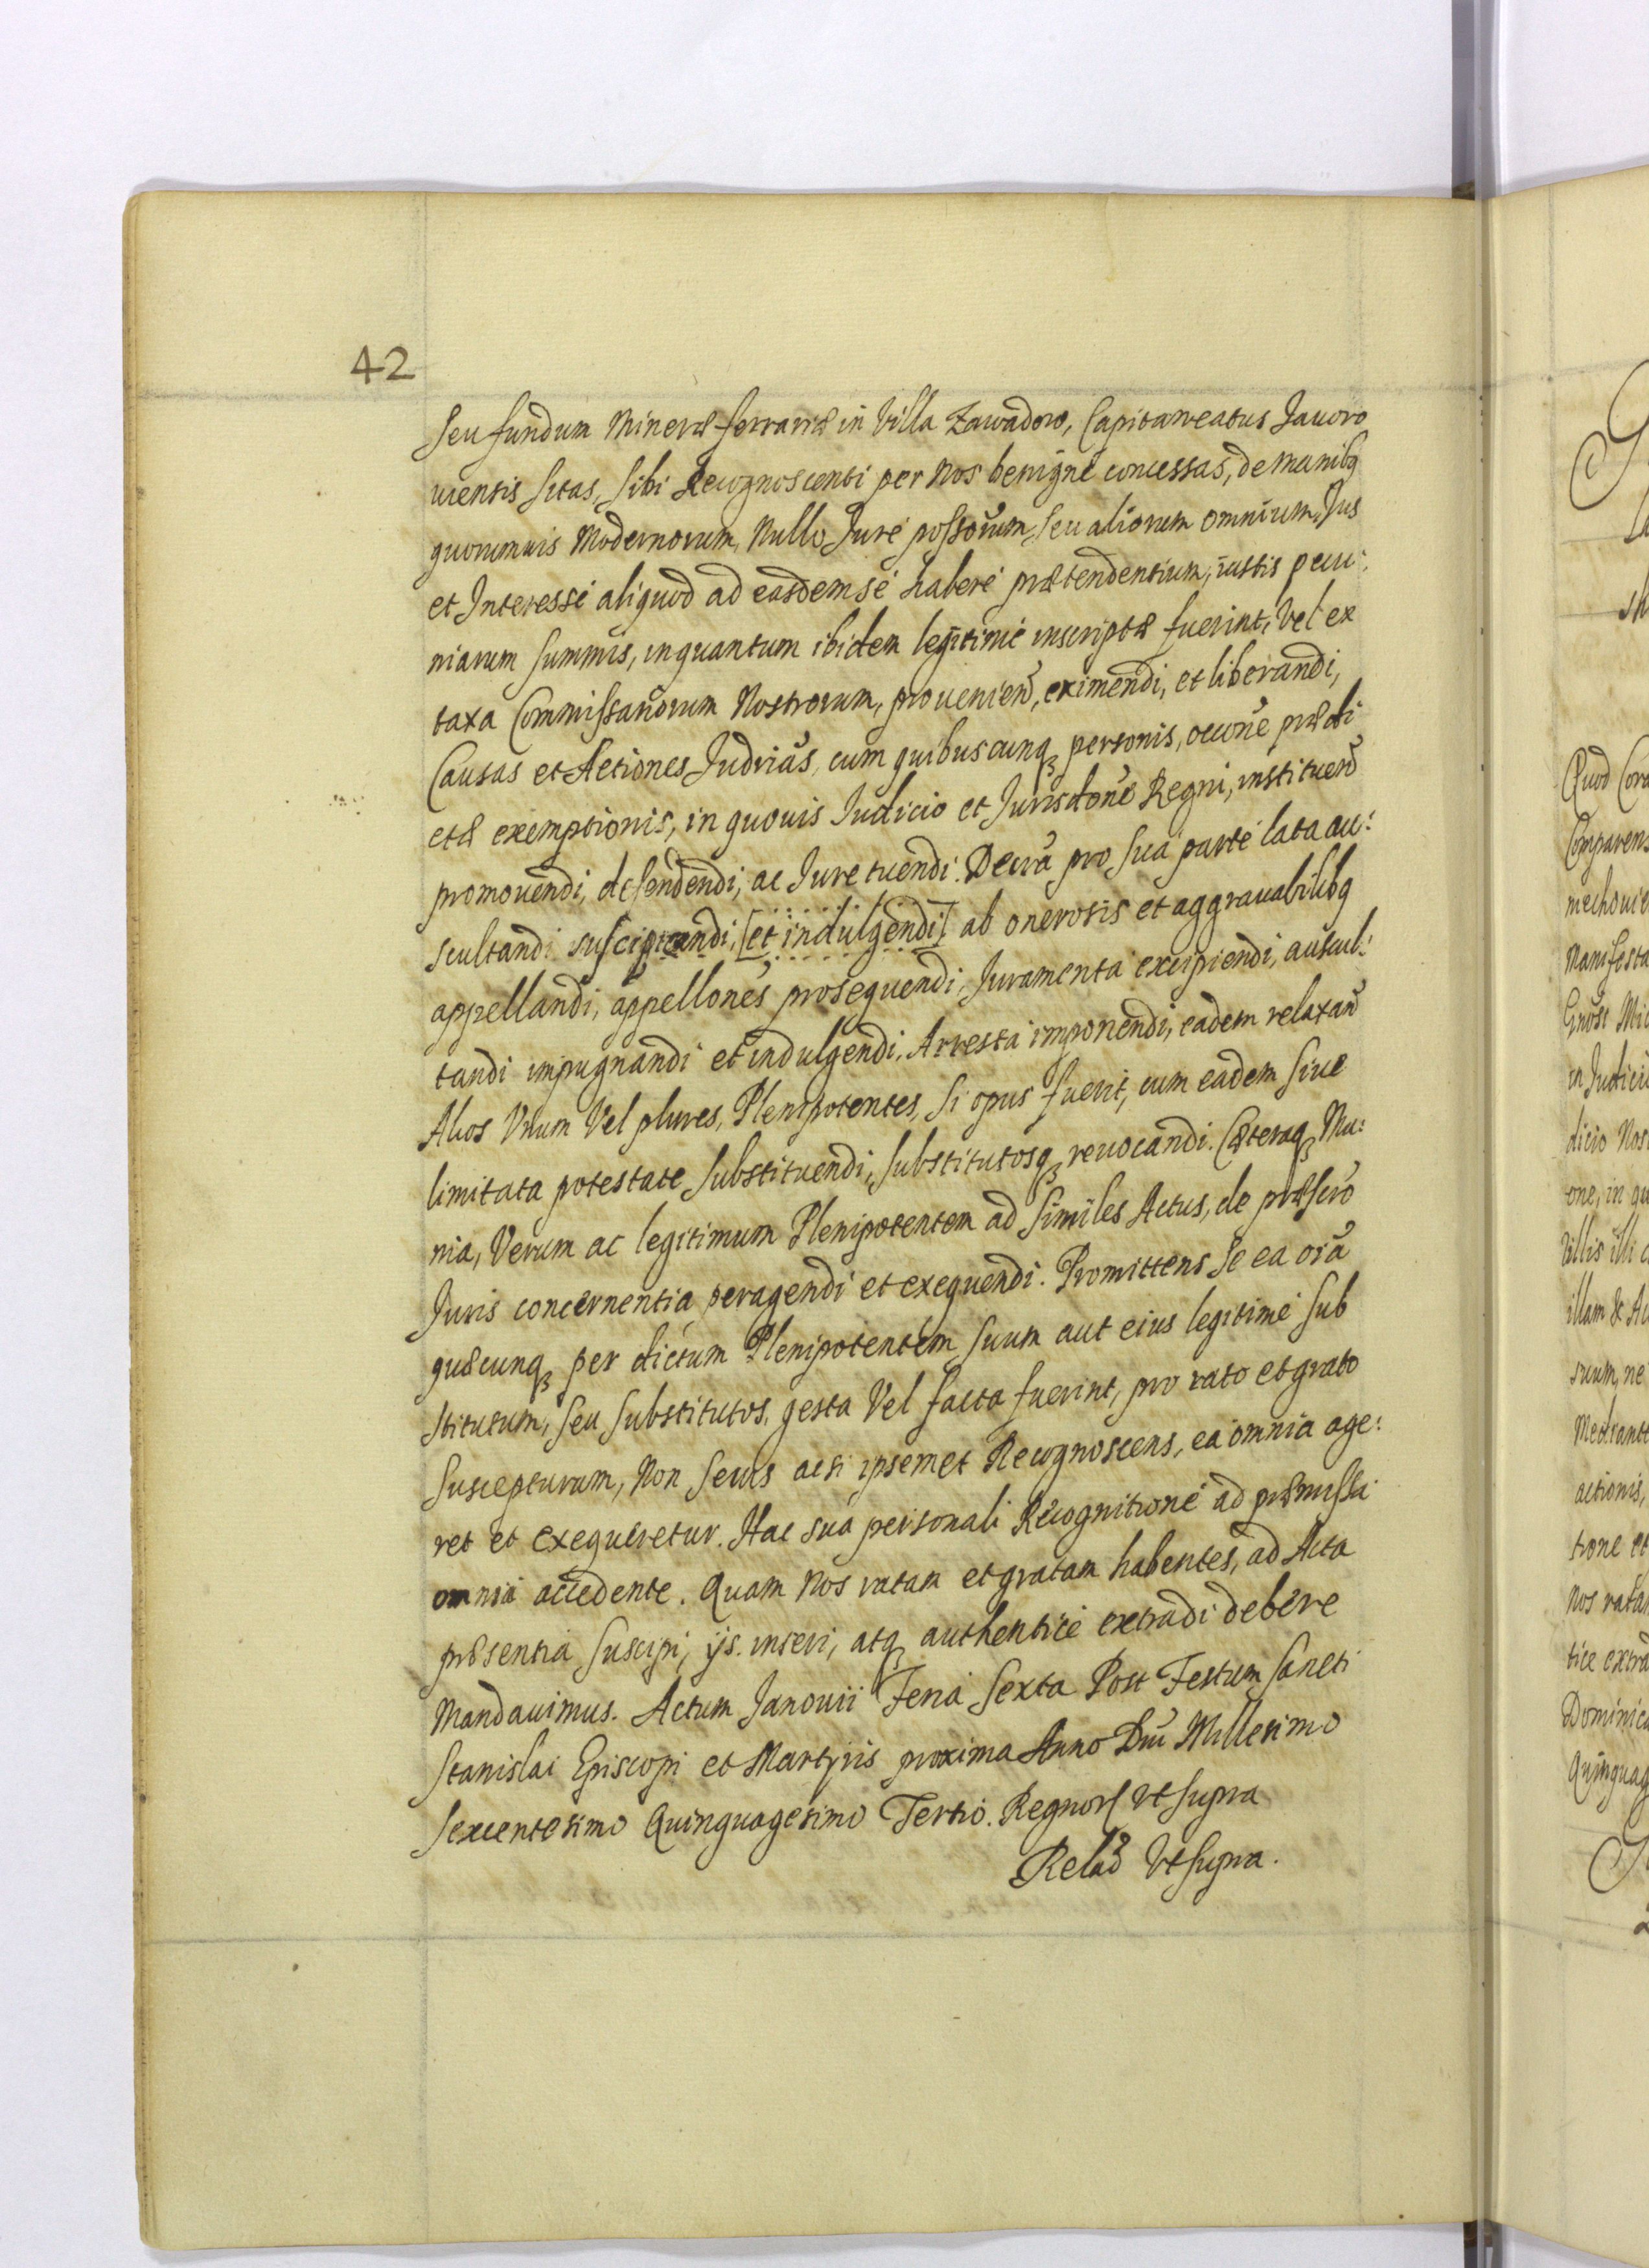 42
seu fundum Mineræ ferrariæ in Villa Zawadow, Capitaneatus Jaworo
uiensis sitas, sibi Recognoscenti per Nos benigné concessas, de manibq
quorumuis Modernorum, Nullo Juré possorum, seu aliorum omnium, Jus
et Interessé aliquod ad easdem sé haberé prætendentium, iustis pecu:
niarum summis, inquantum ibidem legitimé inscriptæ fuerint, Vel ex
taxa Commissariorum Nostrorum, prouenien, eximendi, et liberandi,
Causas et Actiones Judrias, cum quibuscunq personis, occone prædi
ctæ exemptionis, in quouis Judicio et Jurisdone Regni, instituen
promouendi, defendendi, ac Jure tuendi. Decra pro sua parte lata au:
scultandi suscipiendi, [et indulgendi] ab onerosis et aggrauabilibq
appellandi, appellones prosequendi, Juramenta excipiendi, auscul:
tandi impugnandi et indulgendi. Arresta imponendi, eadem relaxan
Alios Vnum Vel plures, Plenipotentes, si opus fuerit, cum eadem siue
limitata potestate substituendi, substitutosq reuocandi. Cæteraq Mu:
nia, Verum ac legitimum Plenipotentem ad similes Actus, de præscro
Juris concernentia peragendi et exequendi. Promittens se ea oia
quæcunq per dictum Plenipotentem suum aut eius legitimé sub
stitutum, seu substitutos, gesta Vel facta fuerint, pro rato et grato
suscepturum, Non secus acsi ipsemet Recognoscens, ea omnia age:
ret et exequeretur. Hac sua personali Recognitioné ad præmissa
omnia accedente. Quam Nos ratam et gratam habentes, ad Acta
præsentia suscipi, ijs. inseri, atq authenticé extradi debere
Mandauimus. Actum Janouii Feria Sexta Post Festum Sancti
Stanislai Episcopi et Martyris proxima Anno Dni Millesimo
sexcentesimo Quinquagesimo Tertio. Regnor Vt supra
Relao Vt supra.